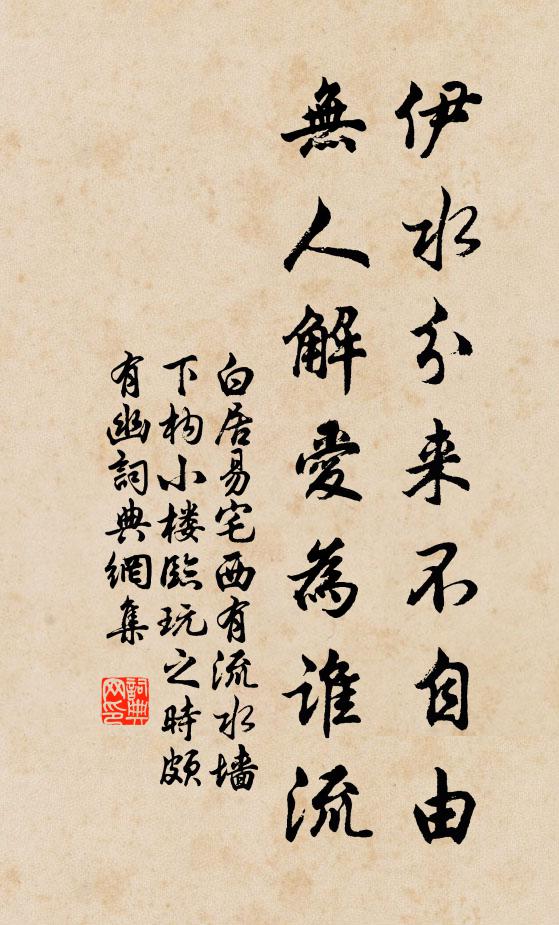 伊水分来不自由
無人解愛為誰流
白居易宅西有流水墙
下构小楼臨玩之時颇
有幽詞典網集
詞典网印